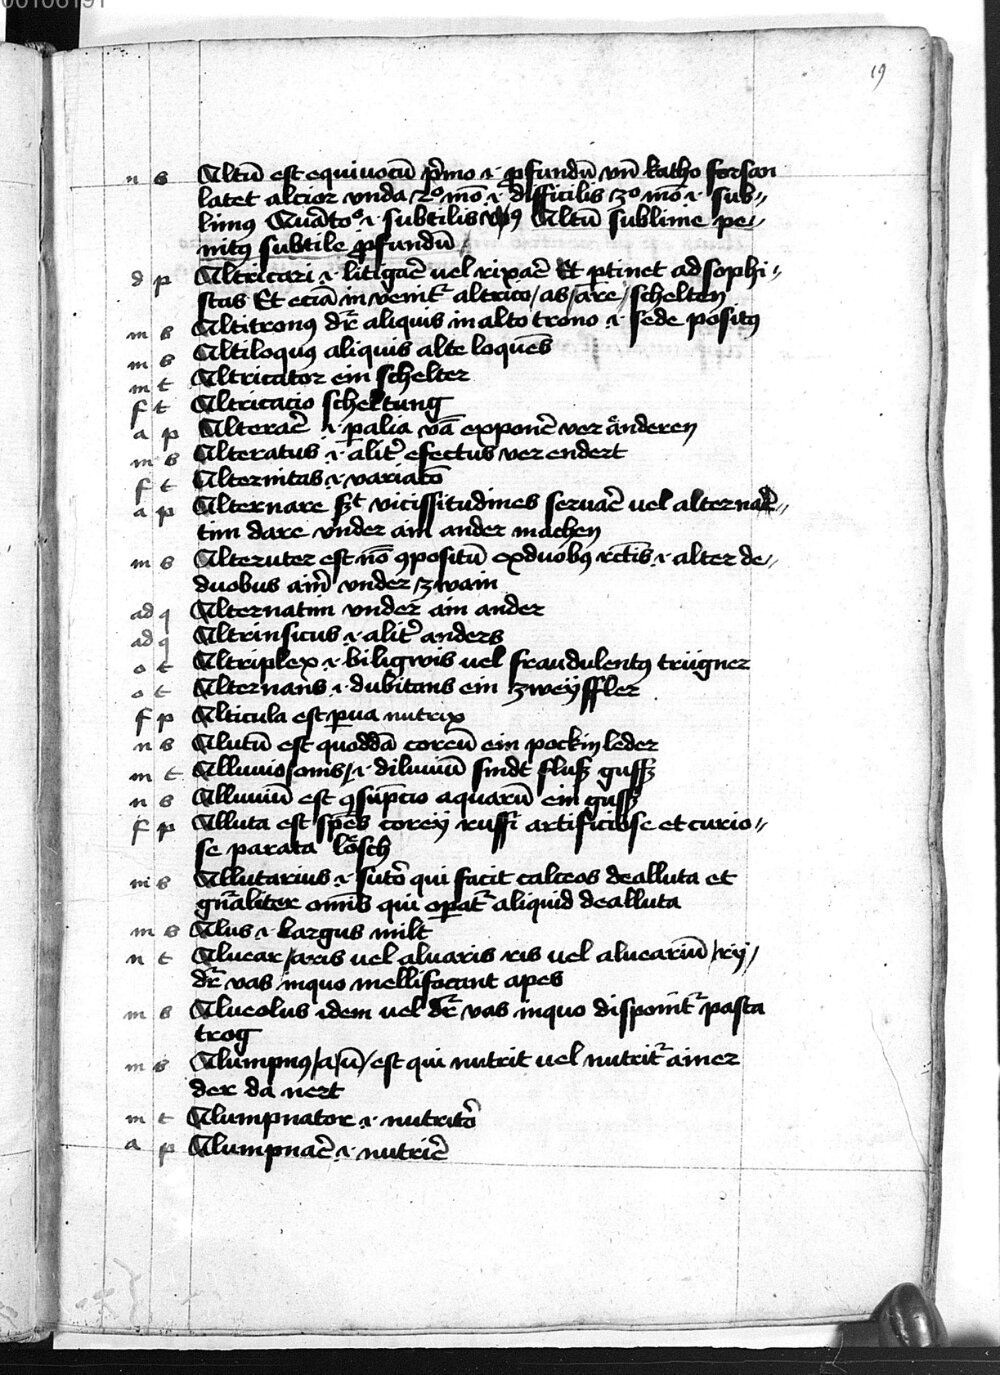 19
n s Altū est equiuocū p̄mo .i. ꝓfundū vn̄ katho forsan
latet altior vnda 2º mō .i. difficilis 3º mō .i. sub„
limis Quarto .i. subtilis Altū sublime pe„
nitus subtile ꝓfundū
d p Altricari .i. litigar̄ uel rixar̄ Et ptinet ad sophi„
stas Et eciā in venit altrico/as/are/schelten
m s Altitronus dr̄ aliquis in alto trono .i. sede positus
m s Altiloquus aliquis alte loquēs
m t Altricator ein schelter
f t Altricacio scheltung
a p Alterar̄ .i. palia vā exponer̄ ver änderen
m s Alteratus .i. alit̄ efectus ver endert
f t Alternitas .i. variatō
a p Alternare vicissitudines seruar̄ uel alterna„
tim dare vnder ain ander machen
m s Alteruter est nō ꝯpositū ex duobus rētis .i. alter de„
duobus ain̄ vnder zwain
ad q Alternatim vnder ain ander
ad q Altrinsicus .i. alit̄ anders
o t Altriplex .i. biligwis uel fraudulentus trügner
o t Alternans .i. dubitans ein zweyffler
f p Alticula est pua nutrix
n s Alutū est quoddā coreū ein pockin leder
m t Alluuio/onis/.i. diluuiū sindt flusz gussz
n s Alluuiū est ꝯsūpcio aquarū ein gussz
f p Alluta est spēs corey ruffi artificiose et curio„
se parata lösch
m s Allutarius .i. sutor̄ qui facit calceos de alluta et
gn̄aliter omīs qui opat̄ aliquid de alluta
m s Alus .i. largus milt
n t Aluear/aris uel aluaris ris uel aluearíū/rij/
dr̄ vas in quo mellificant apes
m s Alueolus idem uel dr̄ vas in quo disponit̄ pasta
trog
m s Alumpnus/a/ū/est qui nutrit uel nutrit̄ ainer
der da nert
m t Alumpnator .i. nutritor̄
a p Alumpnar̄ .i. nutrir̄